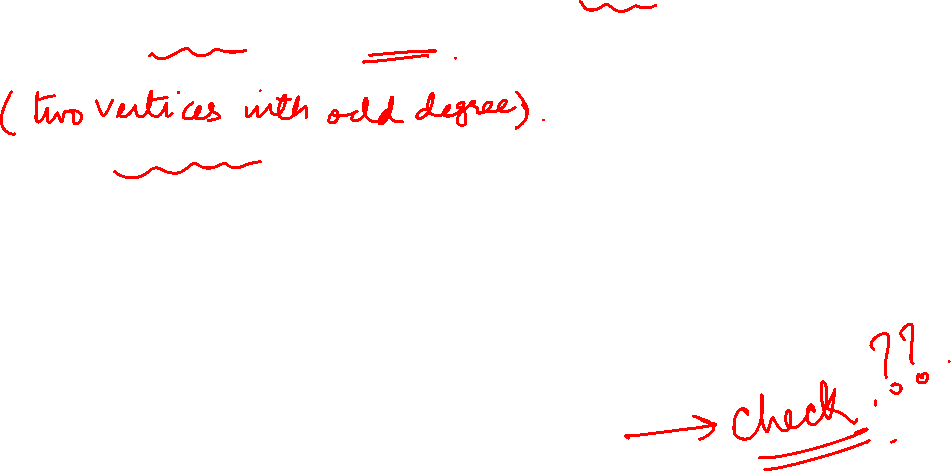 (two vertices with odd degree).
→ check.??